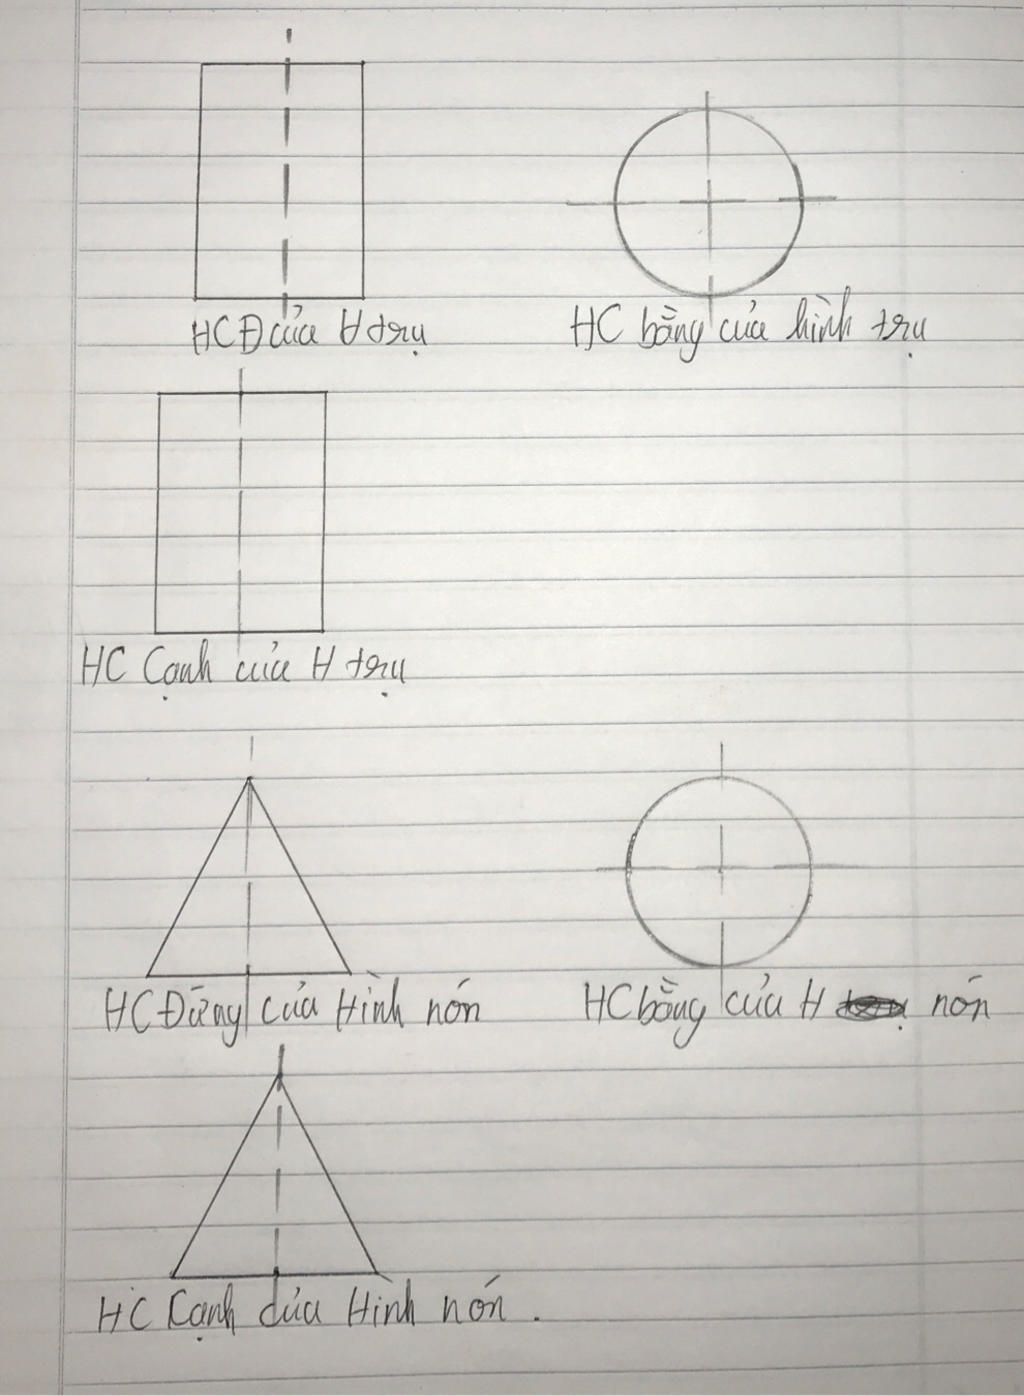 HCĐ của H trụ
HC bằng của hình trụ
HC Cạnh của H trụ
HC Đứng của Hình nón
HC bằng của H nón
HC Cạnh của Hình nón.